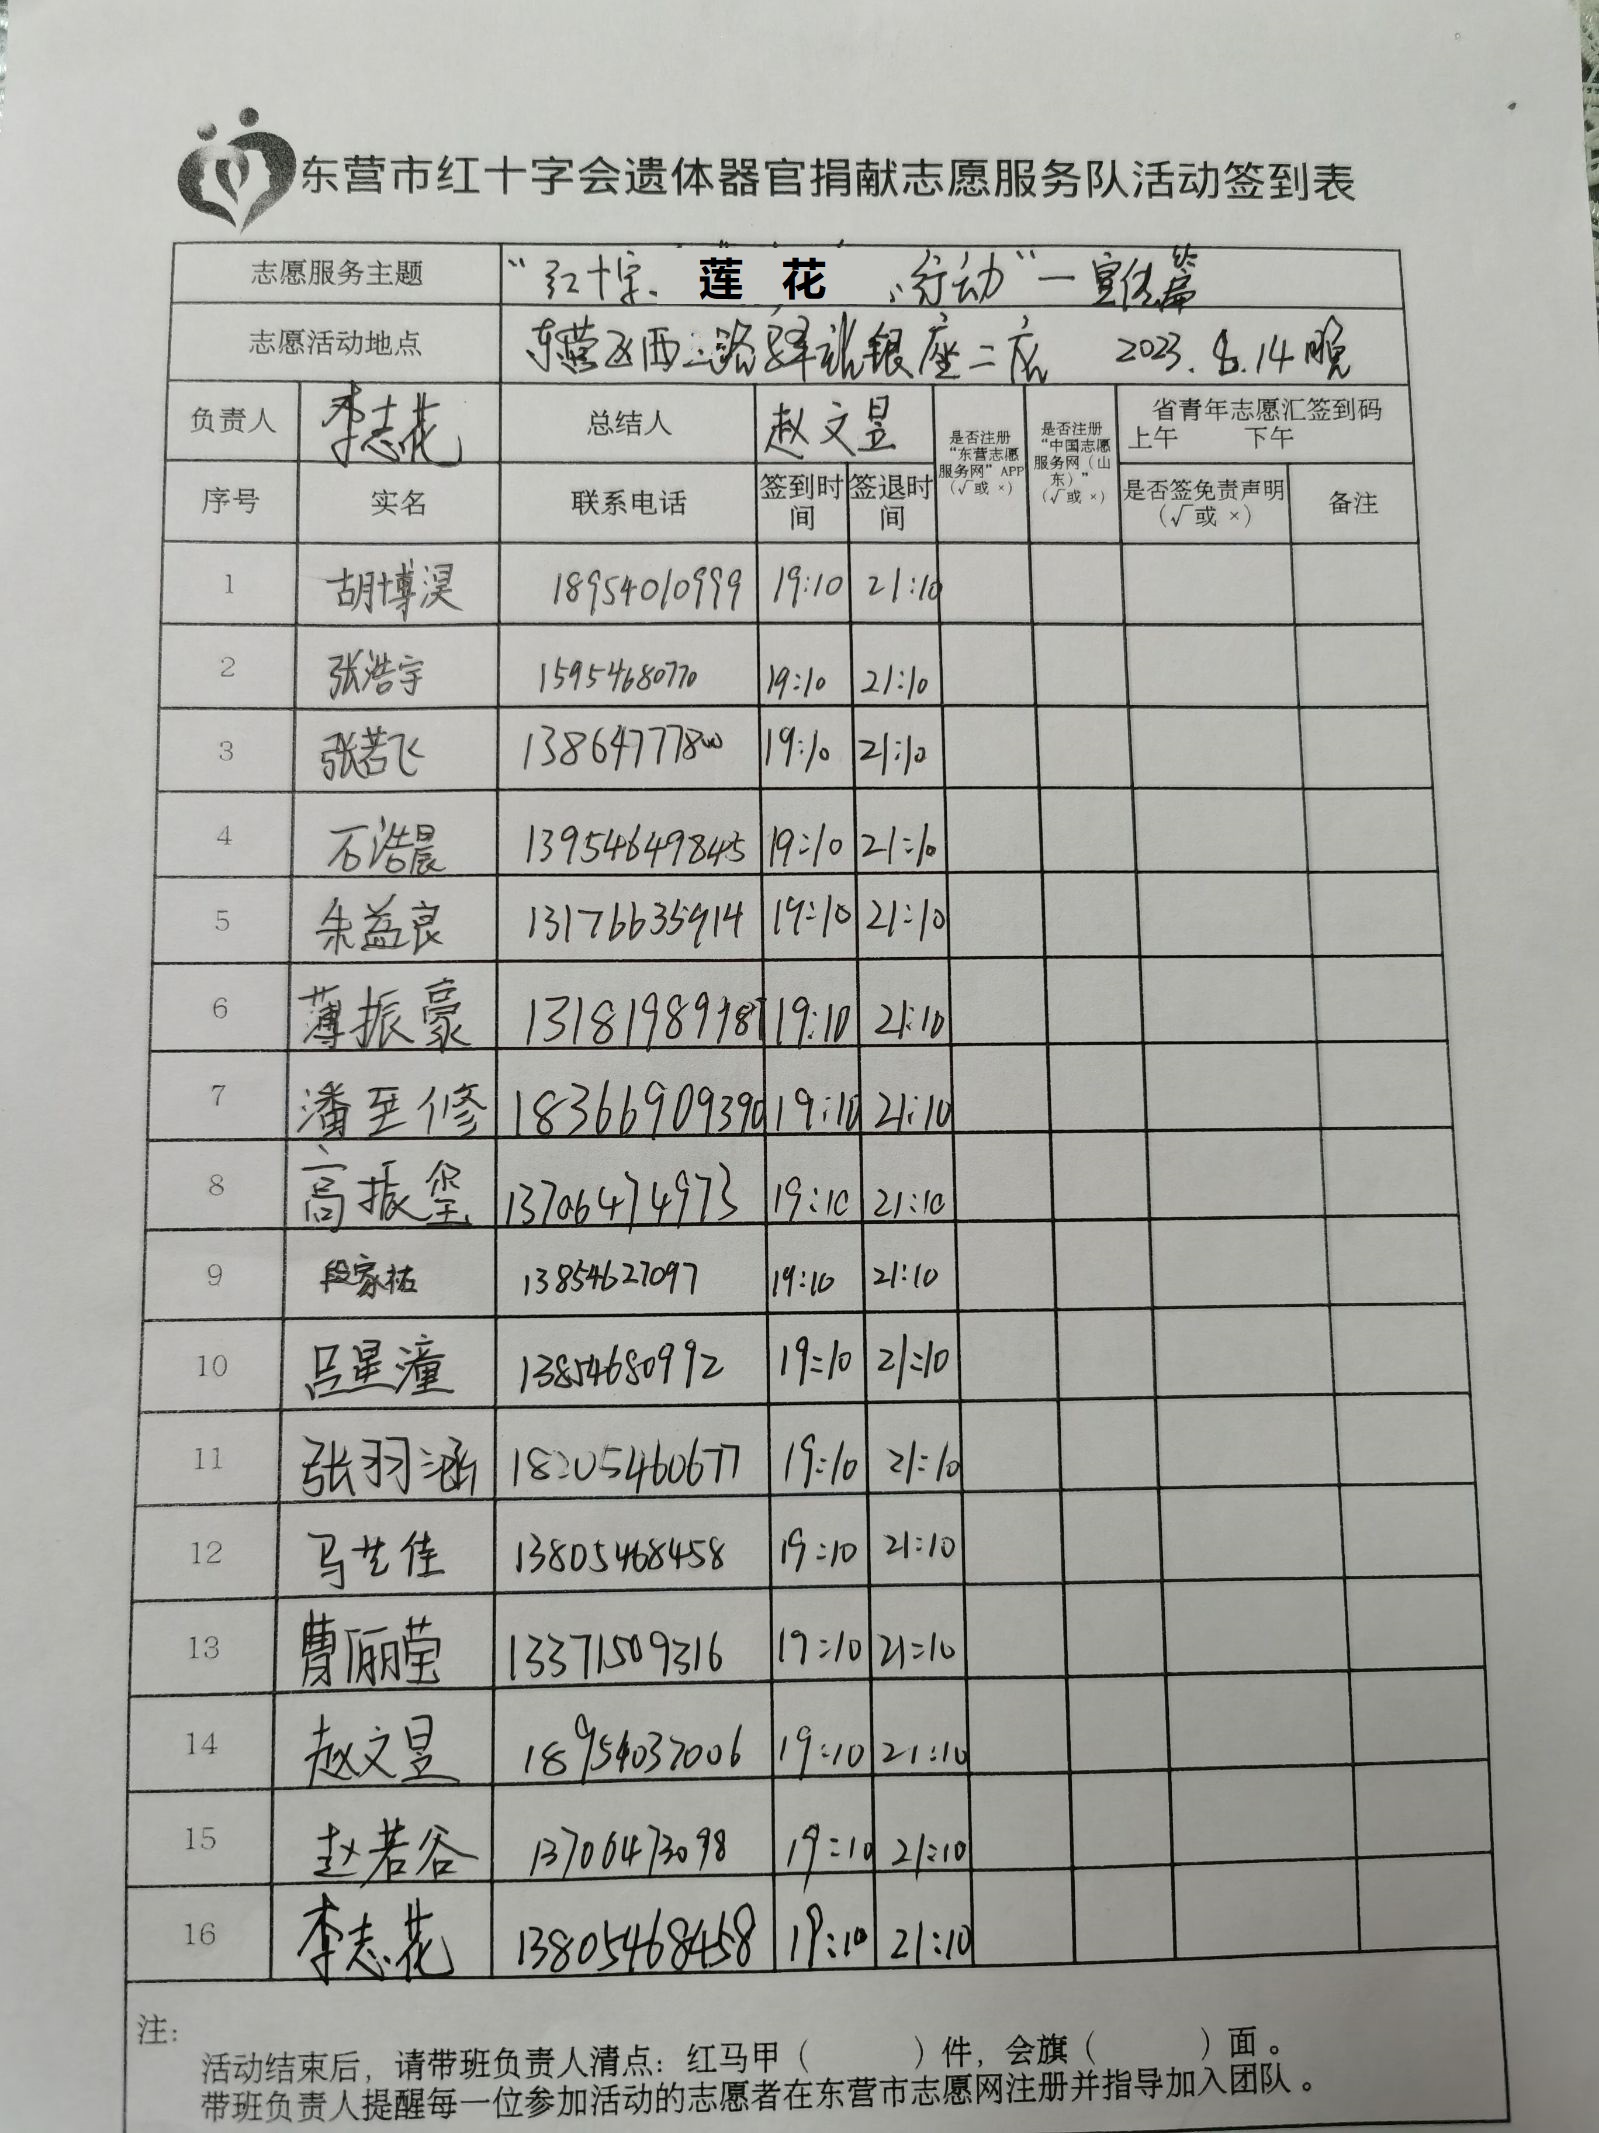 东营市红十字会遗体器官捐献志愿服务队活动签到表
志愿服务主题 “红十字、莲花、行动”一宣传篇
志愿活动地点 东营区西二路驿站银座二店 2023.8.14晚
负责人 李志花 总结人 赵文昱 是否注册“东营志愿服务网”APP（√或×） 是否注册“中国志愿服务网（山东）”（√或×） 省青年志愿汇签到码 上午 下午
序号 实名 联系电话 签到时间 签退时间 是否签免责声明（√或×） 备注
1 胡博淏 18954010999 19:10 21:10
2 张浩宇 15954680770 19:10 21:10
3 张若飞 13864777800 19:10 21:10
4 石浩晨 13954649845 19:10 21:10
5 朱益良 13176635914 19:10 21:10
6 薄振豪 19:10 21:10
7 潘至修 18366909390 19:10 21:10
8 高振堡 13706474973 19:10 21:10
9 段家祐 13854627097 19:10 21:10
10 吕星潼 13854680992 19:10 21:10
11 张羽涵 18205460677 19:10 21:10
12 马艺佳 13805468458 19:10 21:10
13 曹俪莹 13371509316 19:10 21:10
14 赵文昱 18954037006 19:10 21:10
15 赵若谷 13706473098 19:10 21:10
16 李志花 13805468458 19:10 21:10
注：
活动结束后，请带班负责人清点：红马甲（ ）件，会旗（ ）面。
带班负责人提醒每一位参加活动的志愿者在东营市志愿网注册并指导加入团队。